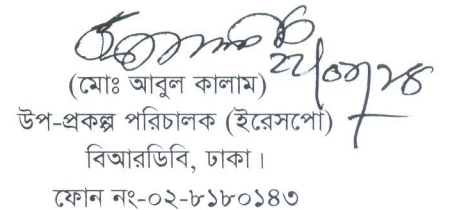 (মোঃ আবুল কালাম)
উপ-প্রকল্প পরিচালক (ইরেসপো)
বিআরডিবি, ঢাকা।
ফোন নং-০২-৮১৮০১৪৩